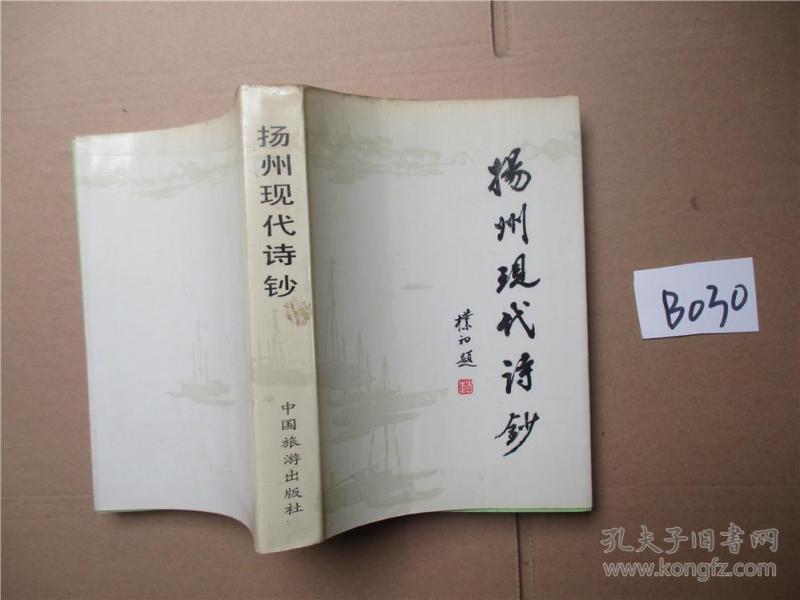 扬州现代诗钞
中国旅游出版社
揚州现代詩鈔
樸初题
B030
孔夫子旧书网
www.kongfz.com